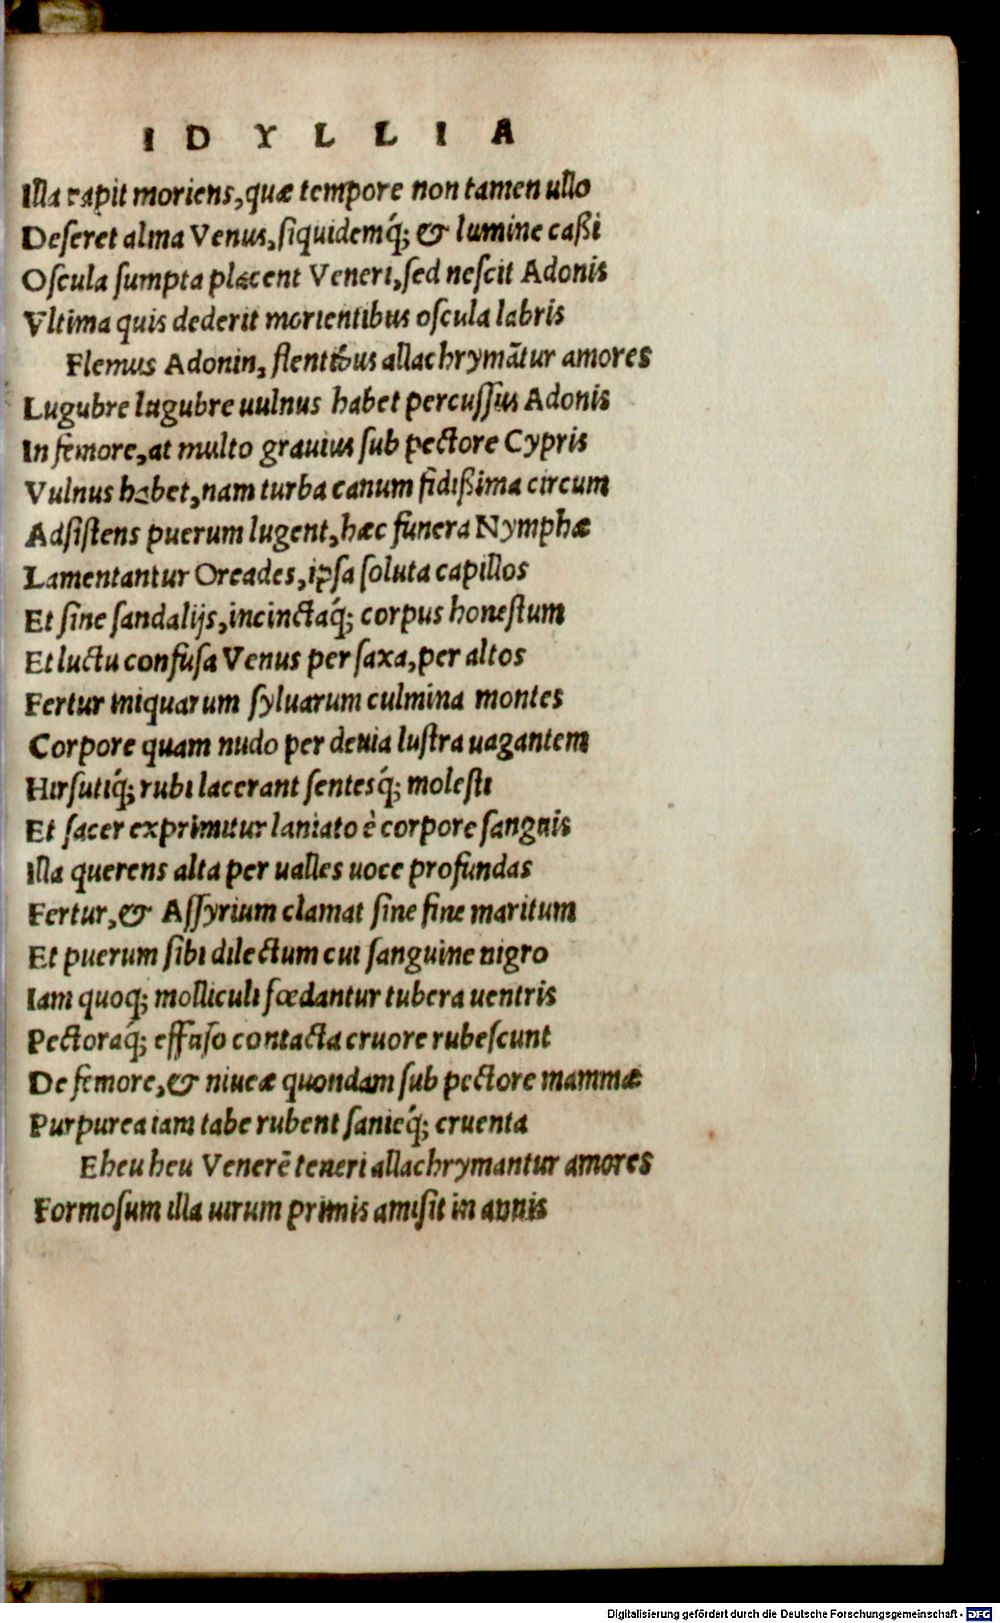 IDYLLIA
Illa rapit moriens, quæ tempore non tamen ullo
Deseret alma Venus, siquidemq́; & lumine caßi
Oscula sumpta placent Veneri, sed nescit Adonis
Vltima quis dederit morientibus oscula labris
Flemus Adonin, flentibus allachrymãtur amores
Lugubre lugubre uulnus habet percussus Adonis
In femore, at multo grauius sub pectore Cypris
Vulnus habet, nam turba canum fidißima circum
Adsistens puerum lugent, hæc funera Nymphæ
Lamentantur Oreades, ipsa soluta capillos
Et sine sandalijs, incinctaq́; corpus honestum
Et luctu confusa Venus per saxa, per altos
Fertur iniquarum syluarum culmina montes
Corpore quam nudo per deuia lustra uagantem
Hirsutiq́; rubi lacerant sentesq́; molesti
Et sacer exprimitur laniato è corpore sanguis
Illa querens alta per ualles uoce profundas
Fertur, & Assyrium clamat sine fine maritum
Et puerum sibi dilectum cui sanguine nigro
Iam quoq; molliculi fœdantur tubera uentris
Pectoraq́; effuso contacta cruore rubescunt
De femore, & niueæ quondam sub pectore mammæ
Purpurea iam tabe rubent sanieq́; cruenta
Eheu heu Venerẽ teneri allachrymantur amores
Formosum illa uirum primis amisit in annis
Digitalisierung gefördert durch die Deutsche Forschungsgemeinschaft - DFG